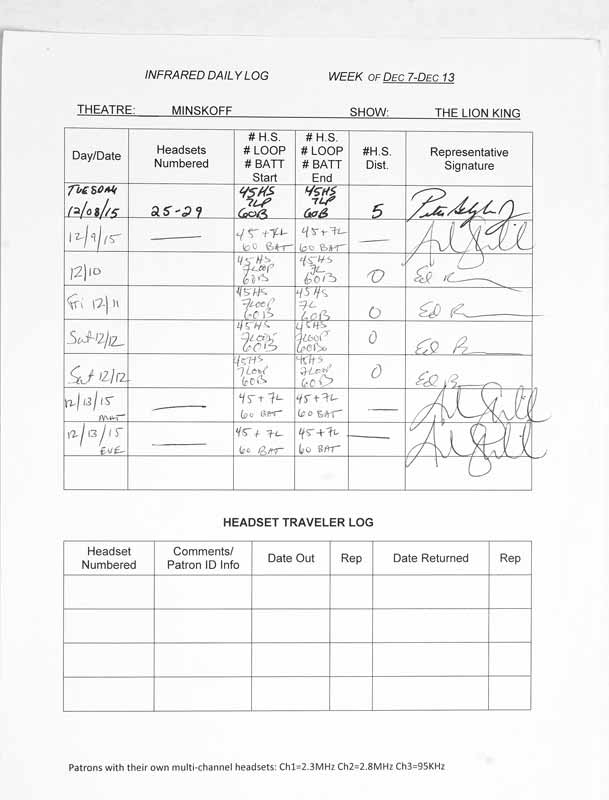 INFRARED DAILY LOG WEEK OF DEC 7-DEC 13
THEATRE: MINSKOFF SHOW: THE LION KING
Day/Date
Headsets
Numbered
# H.S.
# LOOP
# BATT
Start
# H.S.
# LOOP
# BATT
End
#H.S.
Dist.
Representative
Signature
TUESDAY
12/08/15
25-29
45HS
7LP
60B
45HS
7LP
60B
5
Peter
12/9/15
45+7L
60 BAT
45+7L
60 BAT
12/10
45HS
7LOOP
60B
45HS
7L
60B
0
Ed
Fri 12/11
45HS
7LOOP
60B
45HS
7L
60B
0
Ed
Sat 12/12
45HS
7LOOP
60B
45HS
7LOOP
60B
0
Ed
Sat 12/12
45HS
7LOOP
60B
45HS
7LOOP
60B
0
Ed
12/13/15
MAT
45+7L
60 BAT
45+7L
60 BAT
12/13/15
EVE
45+7L
60 BAT
45+7L
60 BAT
HEADSET TRAVELER LOG
Headset
Numbered
Comments/
Patron ID Info
Date Out
Rep
Date Returned
Rep
Patrons with their own multi-channel headsets: Ch1=2.3MHz Ch2=2.8MHz Ch3=95KHz